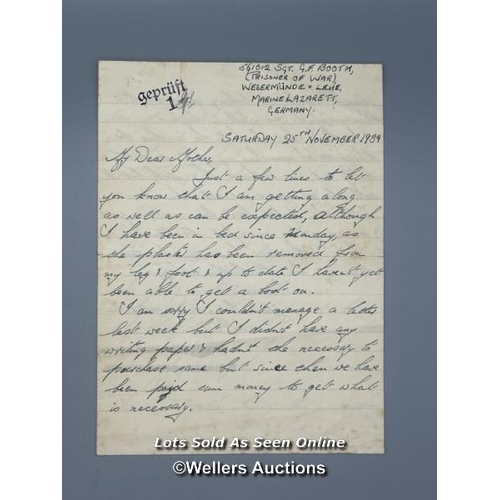 geprüft
1
561012 SGT. G.F. BOOTH,
(PRISONER OF WAR)
WESERMÜNDE - LEHE,
MARINE LAZARETT,
GERMANY.
SATURDAY 25TH NOVEMBER 1939
My Dear Mother,
Just a few lines to let
you know that I am getting along
as well as can be expected, although
I have been in bed since Monday, as
the plaster has been removed from
my leg & foot & up to date I haven't yet
been able to get a boot on.
I am sorry I couldn't manage a letter
last week but I didn't have any
writing paper & hadn't the necessary to
purchase same but since then we have
been paid sum money to get what
is necessary.
Lots Sold As Seen Online
©Wellers Auctions